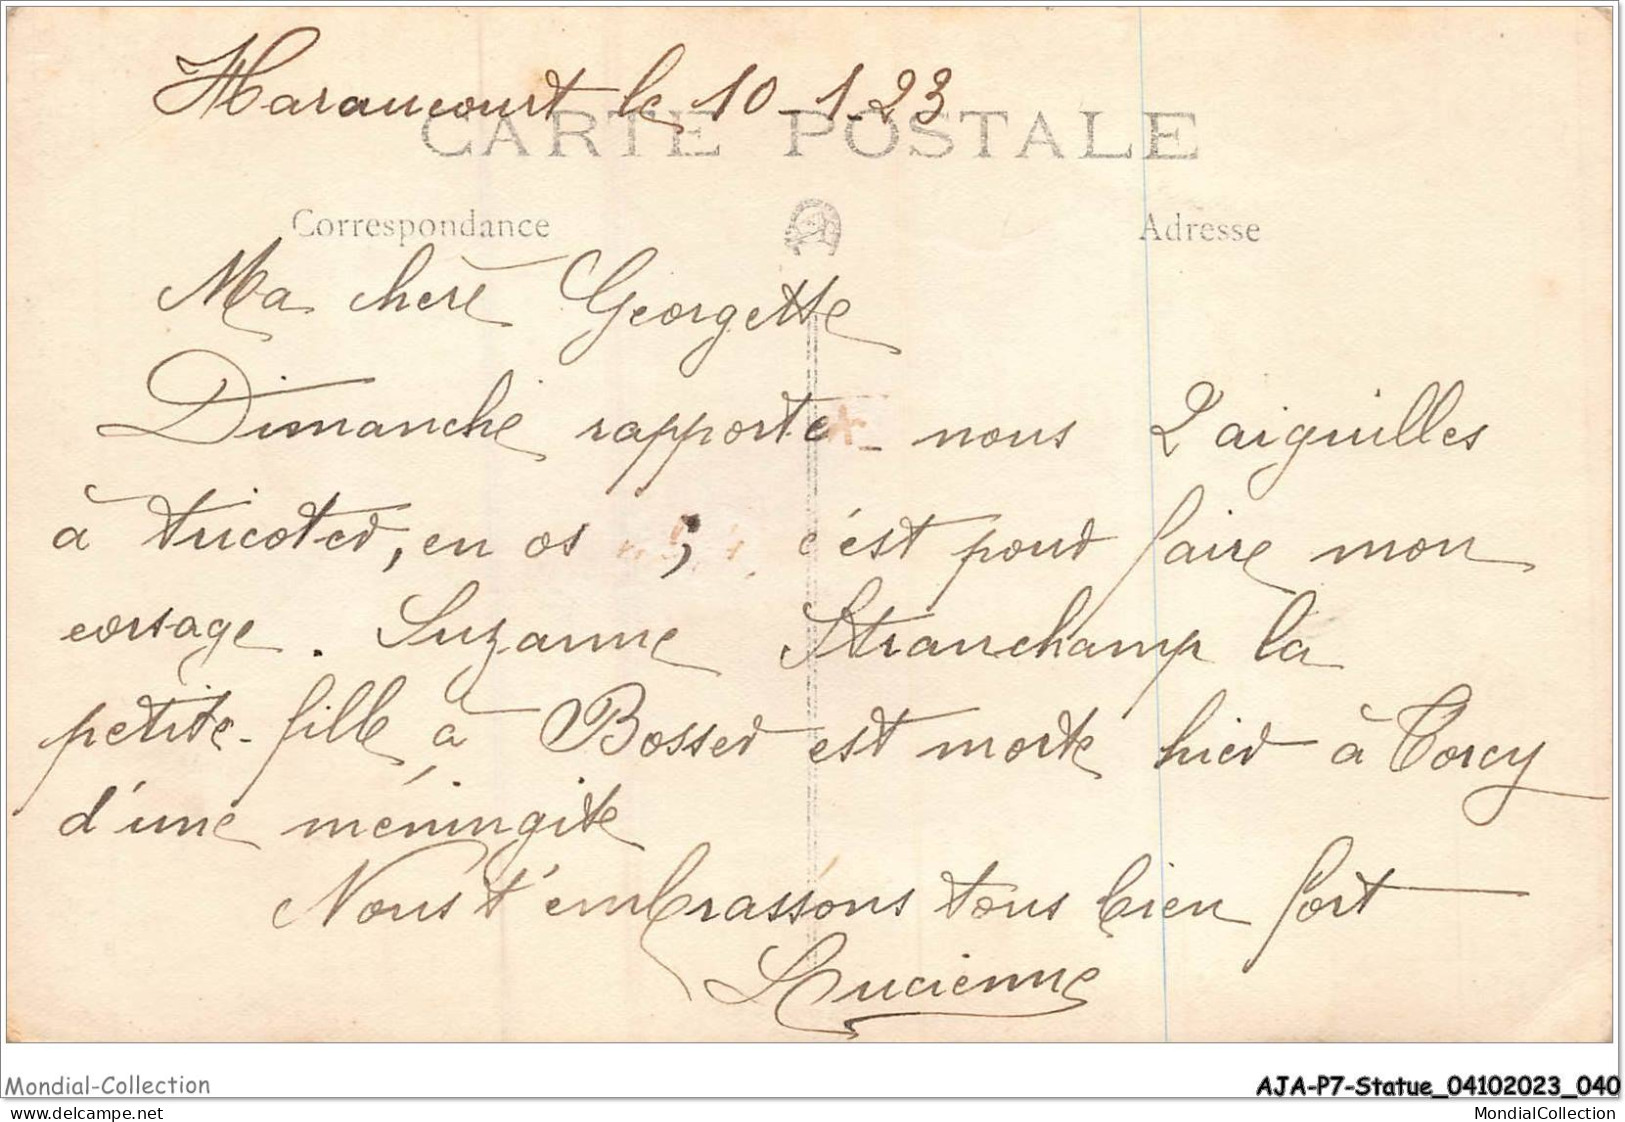 Haraucourt le 10-1-23
CARTE POSTALE
Correspondance
Adresse
Ma chère Georgette
Dimanche rapporte-nous 2 aiguilles
à tricoter, en os ; c'est pour faire mon
corsage. Suzanne la
petite-fille à Bosser est morte hier à Torcy
d'une méningite
Nous t'embrassons tous bien fort
Lucienne
Mondial-Collection
AJA-P7-Statue_04102023_040
www.delcampe.net
MondialCollection